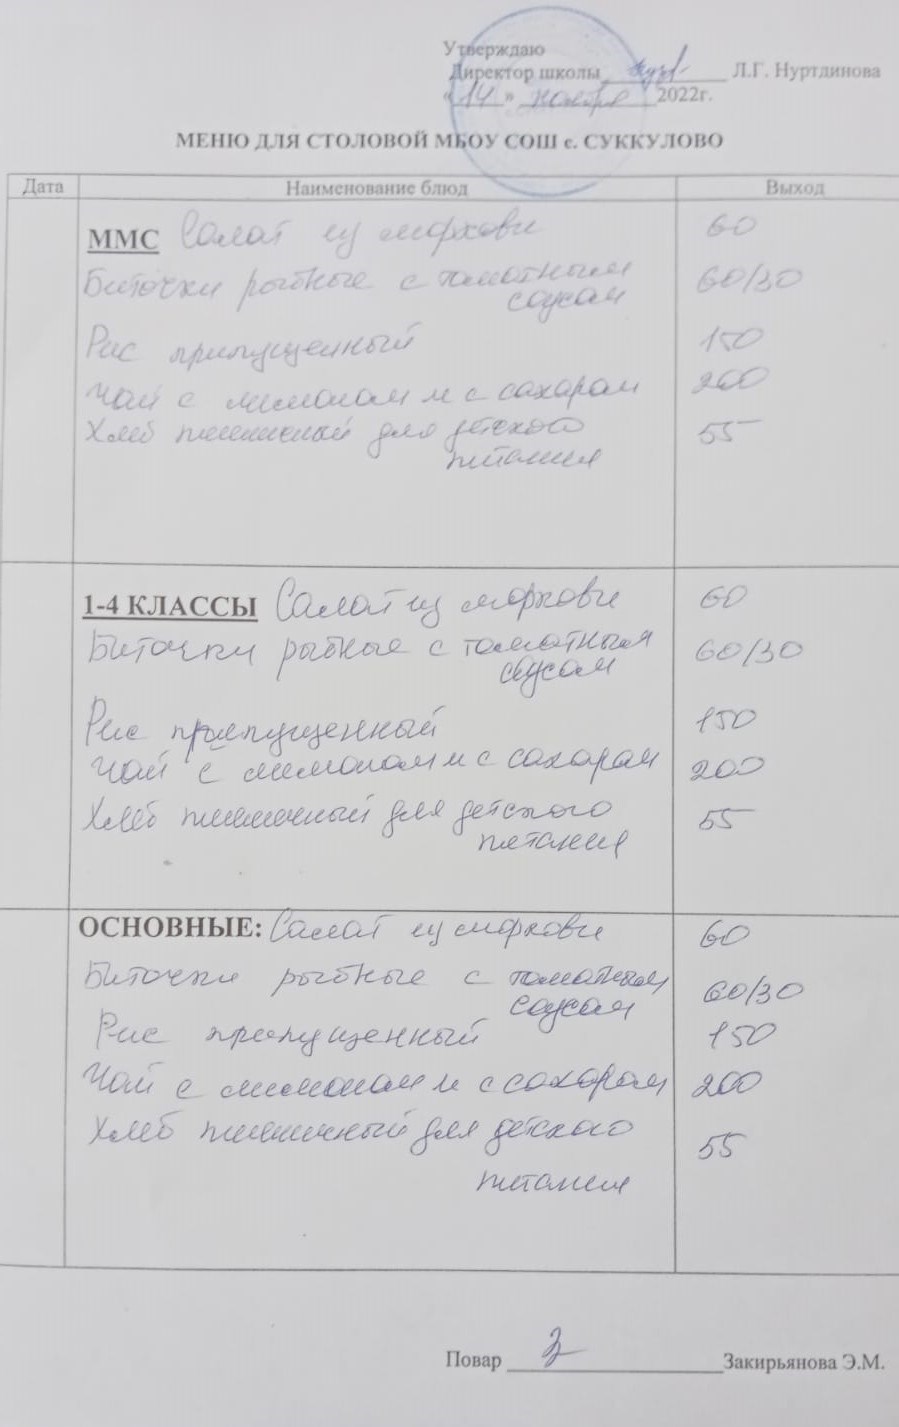 Утверждаю
Директор школы Л.Г. Нуртдинова
«14» ноября 2022г.
МЕНЮ ДЛЯ СТОЛОВОЙ МБОУ СОШ с. СУККУЛОВО
Дата Наименование блюд Выход
ММС Салат из моркови 60
Биточки рыбные с томатным 60/30
соусом
Рис припущенный 150
Чай с лимоном и с сахаром 200
Хлеб пшеничный для детского 55
питания
1-4 КЛАССЫ Салат из моркови 60
Биточки рыбные с томатным 60/30
соусом
Рис припущенный 150
Чай с лимоном и с сахаром 200
Хлеб пшеничный для детского 55
питания
ОСНОВНЫЕ: Салат из моркови 60
Биточки рыбные с томатным 60/30
соусом
Рис припущенный 150
Чай с лимоном и с сахаром 200
Хлеб пшеничный для детского 55
питания
Повар Закирьянова Э.М.